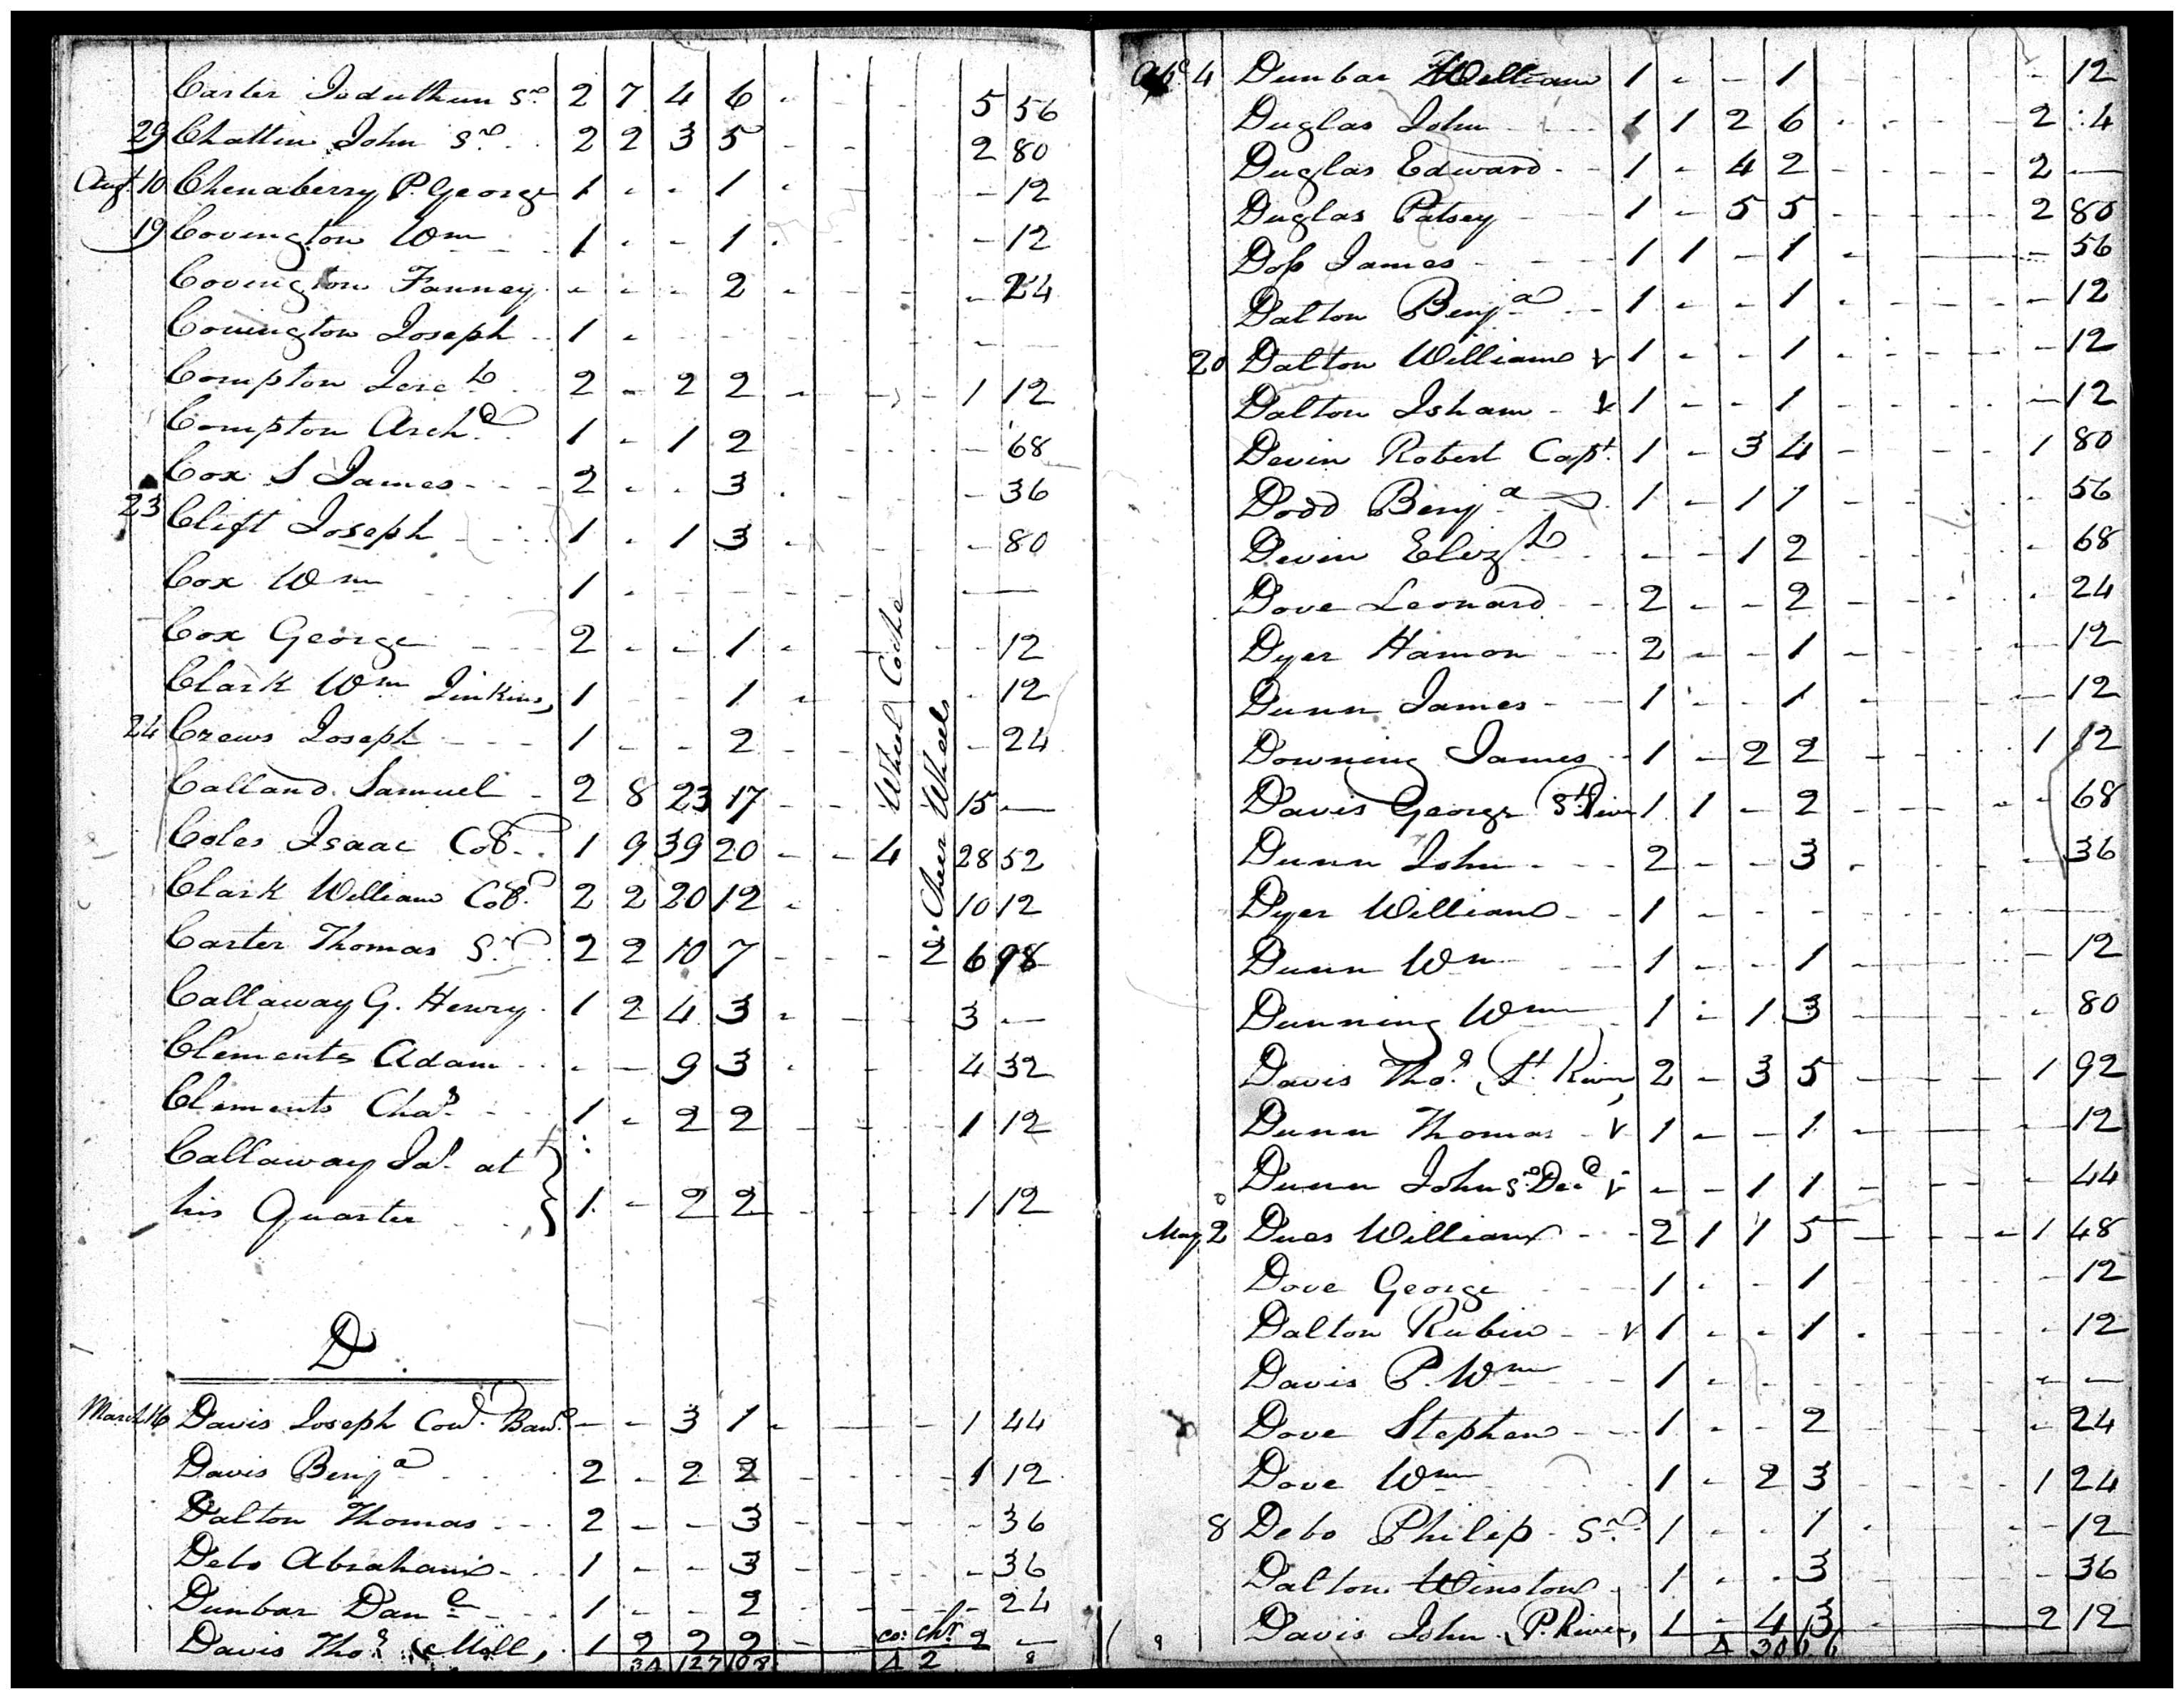 Carter Jeduthun Sr. 2 7 4 6 - - - - 5 56
29 Chattin John Sr. 2 2 3 5 - - 2 80
Augt. 10 Chenaberry P. George 1 - - 1 - - 12
19 Covington Wm 1 - - 1 - - 12
Covington Fanney - - - 2 - - 24
Covington Joseph 1 - - -
Compton Jereh 2 - 2 2 - - - 1 12
Compton Archd. 1 - 1 2 - 68
Cox S James 2 - - 3 - - 36
23 Clift Joseph 1 - 1 3 - - 80
Cox Wm 1 - - - - -
Cox George 2 - - 1 - - - 12
Clark Wm Jinkins, 1 - - 1 - - 12
24 Crews Joseph 1 - - 2 - - - 24
Calland Samuel 2 8 23 17 - - 15 -
Coles Isaac Col. 1 9 39 20 - - 4 28 52
Wheel Coche
Clark William Col. 2 2 20 12 - 10 12
Carter Thomas Sr. 2 2 10 7 - - - 2 6 98
Cheer Wheels
Callaway G. Henry 1 2 4 3 - - 3 -
Clements Adam - - 9 3 - - 4 32
Clements Chas. 1 - 2 2 - - 1 12
Callaway Jas. at
his Quarter 1 - 2 2 - - 1 12
D
March 16 Davis Joseph - - 3 1 - - - 1 44
Davis Benja 2 - 2 2 - - - 1 12
Dalton Thomas 2 - - 3 - - - - 36
Debo Abraham 1 - - 3 - - - 36
Dunbar Danl 1 - - 2 - - - 24
Davis Thos. Mill, 1 2 2 2 - - co: chr. 2 -
34 127 108 4 2
4 Dunbar William 1 - - 1 - 12
Duglas John 1 1 2 6 - - - - 2 4
Duglas Edward 1 - 4 2 - - - - 2 -
Duglas Patsey 1 - 5 5 - - - - 2 80
Doss James 1 1 - 1 - - - 56
Dalton Benja 1 - - 1 - - - - - 12
20 Dalton William v 1 - - 1 - - - - - 12
Dalton Isham v 1 - - 1 - - - - - 12
Devin Robert Capt. 1 - 3 4 - - - - 1 80
Dodd Benja 1 - 1 1 - - - - 56
Devin Elizh - - 1 2 - - - - 68
Dove Leonard 2 - - 2 - - - - 24
Dyer Hamon 2 - - 1 - - - - 12
Dunn James 1 - - 1 - - - 12
Downing James 1 - 2 2 - - - 1 12
Davis George St River 1 1 - 2 - - - - 68
Dunn John 2 - - 3 - - 36
Dyer William 1 - - - - - - -
Dunn Wm 1 - - 1 - - - - 12
Dunning Wm 1 - 1 3 - - - 80
Davis Thos. St. River 2 - 3 5 - - - - 1 92
Dunn Thomas v 1 - - 1 - - - - 12
Dunn John Sr. Decd v - - 1 1 - - - - 44
May 2 Dues William 2 1 1 5 - - - 1 48
Dove George 1 - - 1 - - - - - 12
Dalton Rubin v 1 - - 1 - - - - 12
Davis P. Wm 1 - - - - - - -
Dove Stephen 1 - - 2 - - - - 24
Dove Wm 1 - 2 3 - - - - 1 24
8 Debo Philip Sr. 1 - - 1 - - - - 12
Dalton Winston 1 - - 3 - - - 36
Davis John P. River, 1 - 4 3 - 2 12